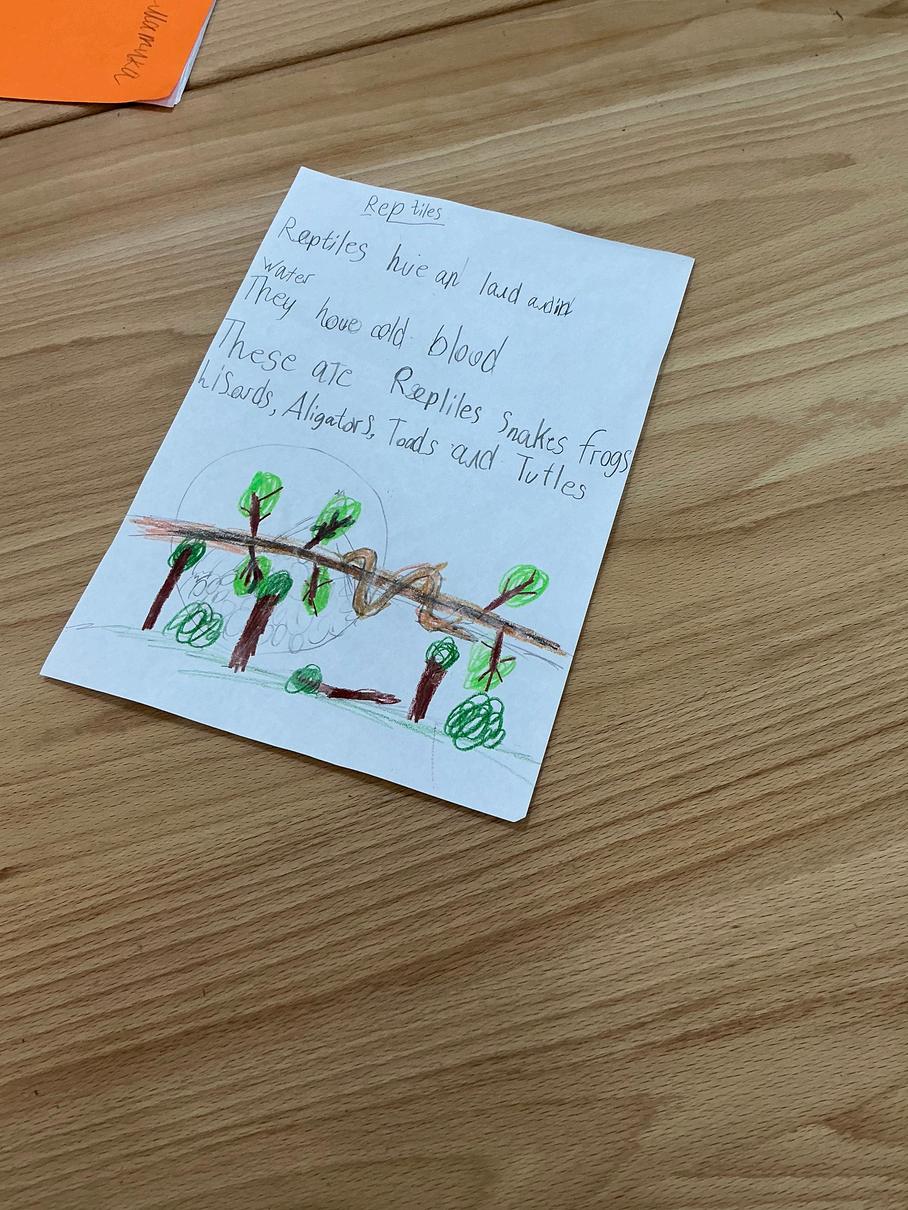 Reptiles
Reaptiles live an land and in
water
They have cold blood
These are Reaptiles snakes frogs
Lisards, Aligators, Toads and Tutles